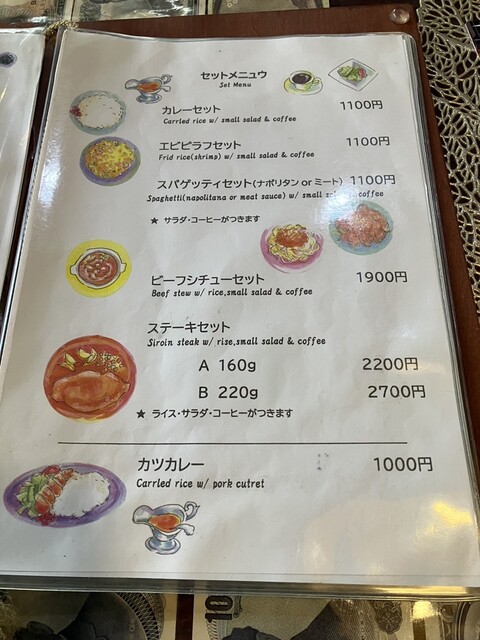 セットメニュウ
Set Menu
カレーセット 1100円
Carrled rice w/ small salad & coffee
エビピラフセット 1100円
Frid rice(shrimp) w/ small salad & coffee
スパゲッティセット(ナポリタン or ミート) 1100円
Spaghetti(napolitana or meat sauce) w/ small salad & coffee
★ サラダ・コーヒーがつきます
ビーフシチューセット 1900円
Beef stew w/ rice,small salad & coffee
ステーキセット
Siroin steak w/ rise,small salad & coffee
A 160g 2200円
B 220g 2700円
★ ライス・サラダ・コーヒーがつきます
カツカレー 1000円
Carrled rice w/ pork cutret
10